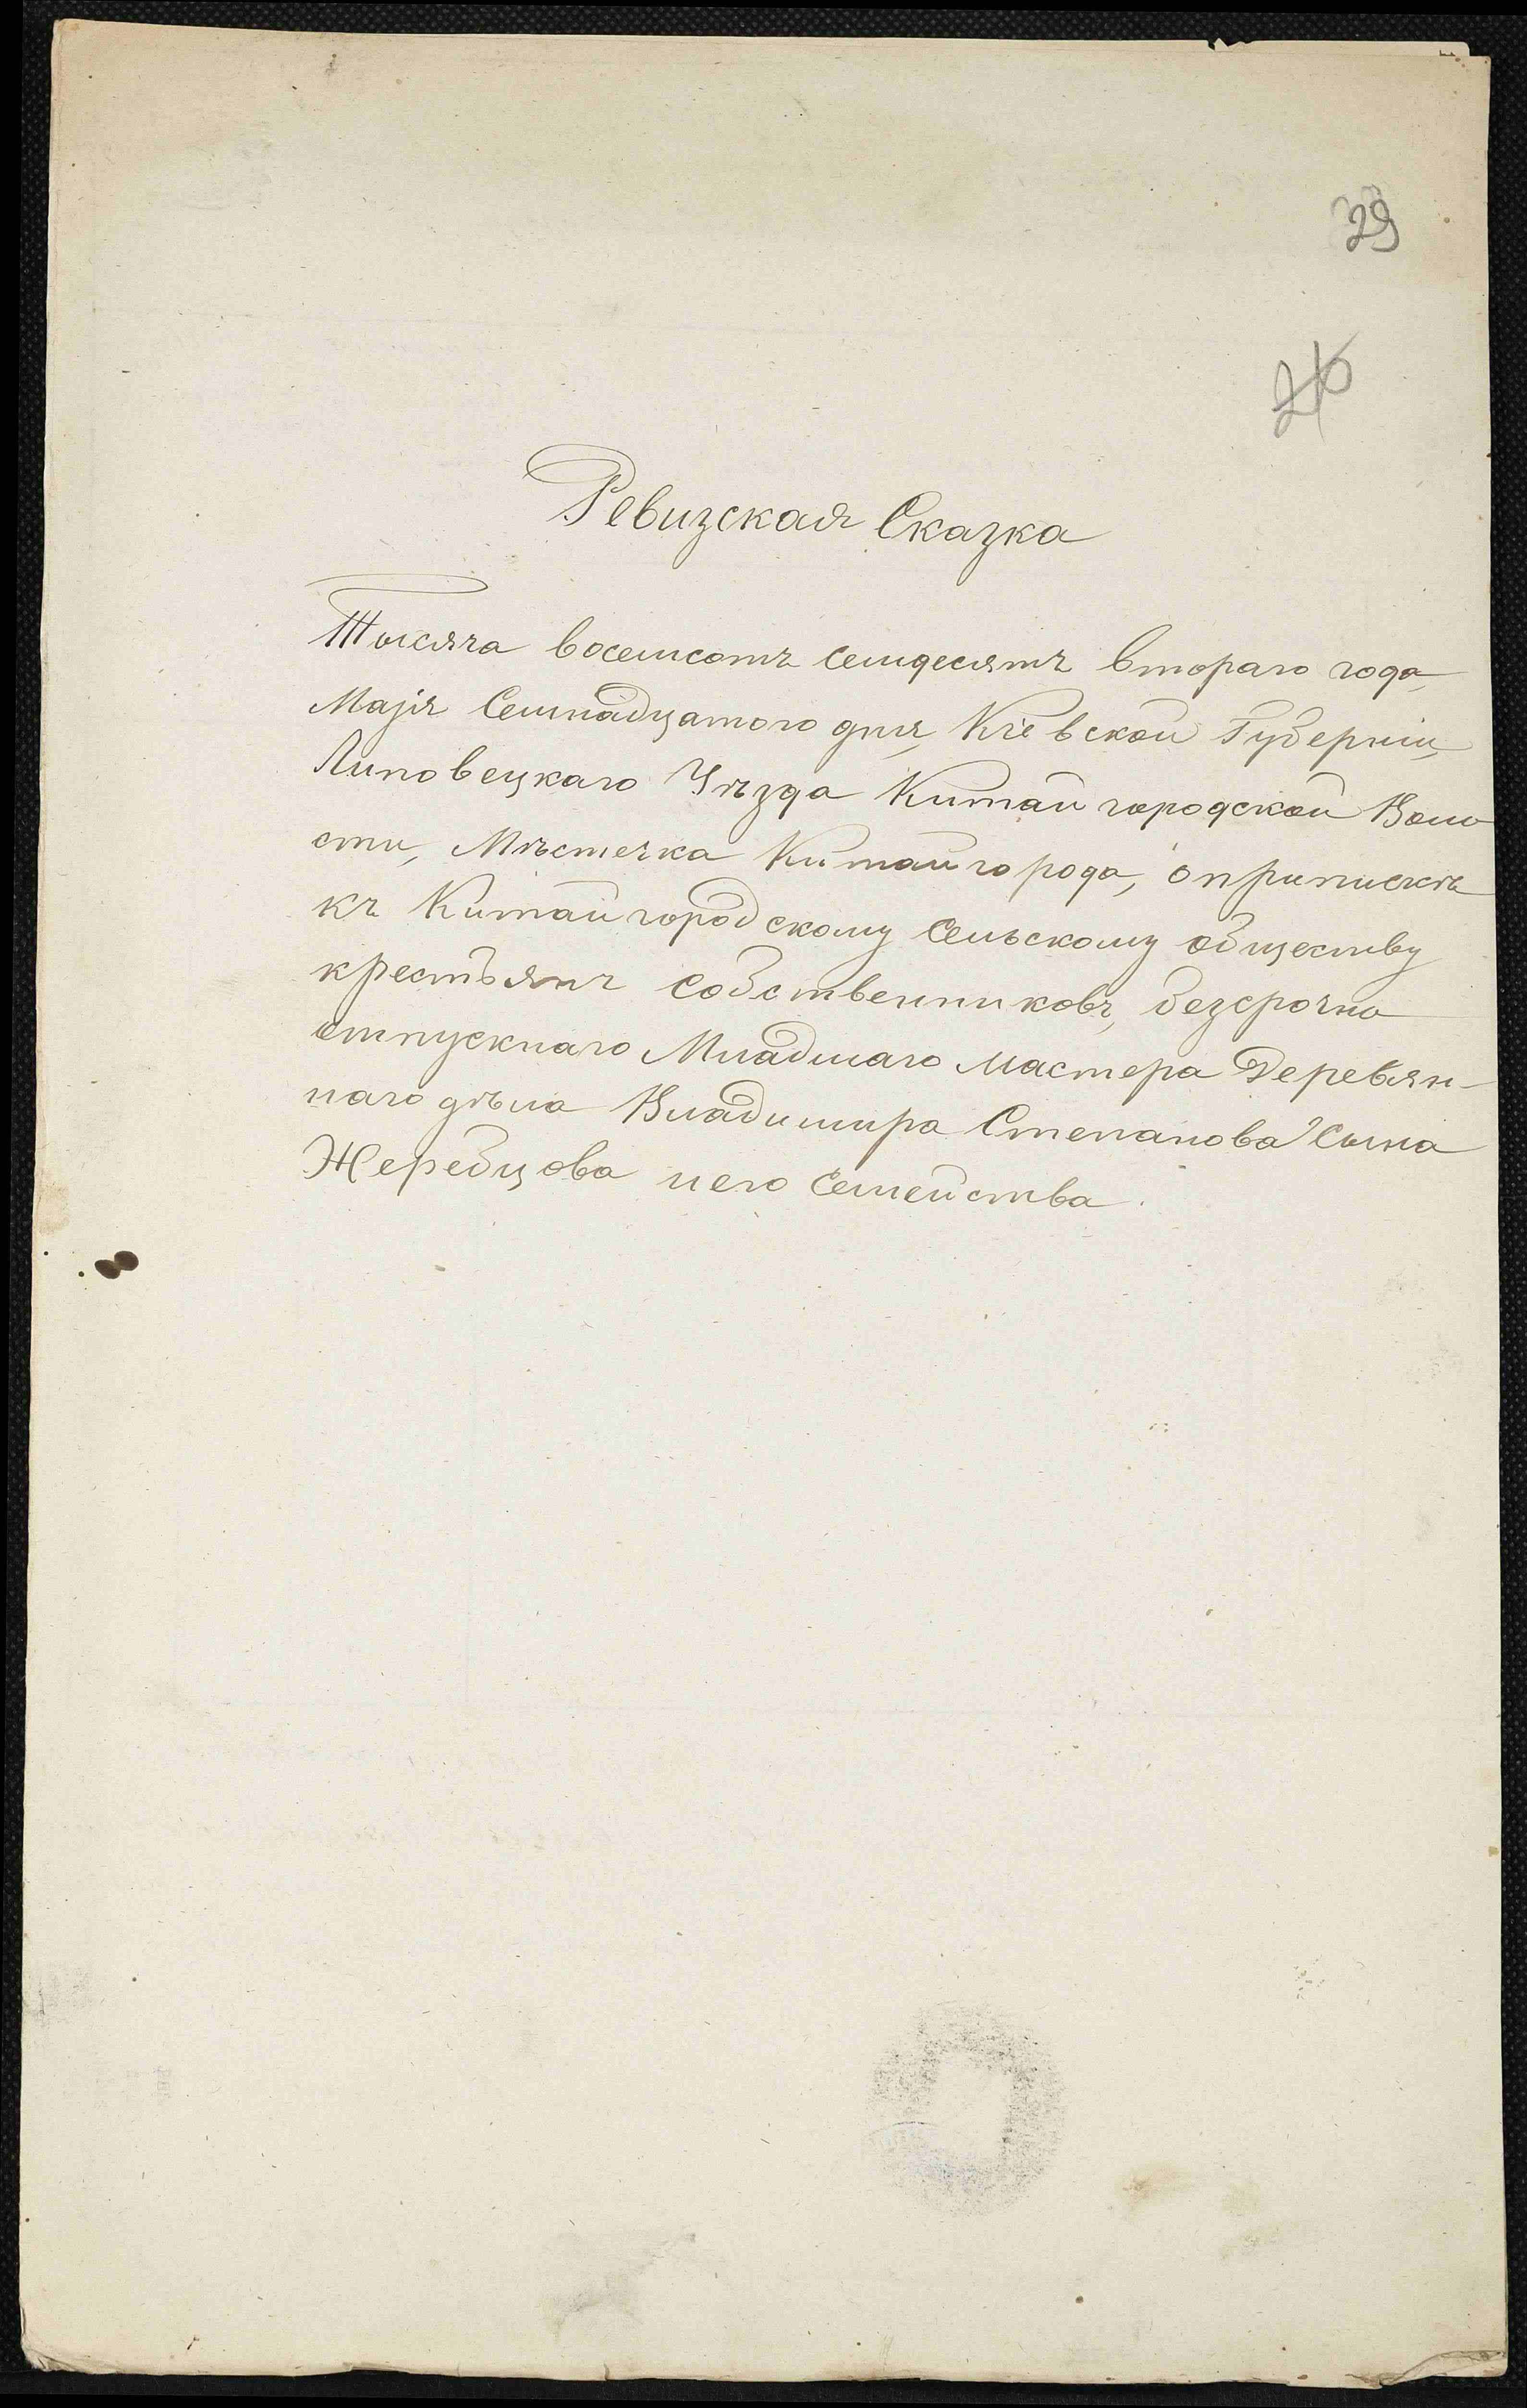 29
26
Ревизская Сказка
Тысяча восемсотъ семдесятъ втораго года,
Маія Семнадцатого дня, Кіевской Губерніи,
Липовецкаго Уѣзда Китайгородской Воло
сти, Мѣстечка Китайгорода, о припискѣ
къ Китайгородскому Сельскому обществу
крестьянъ собственниковъ, безсрочно
отпускнаго Младшаго мастера Деревян-
наго дѣла Владимира Степанова Сына
Жеребцова и его Семейства.